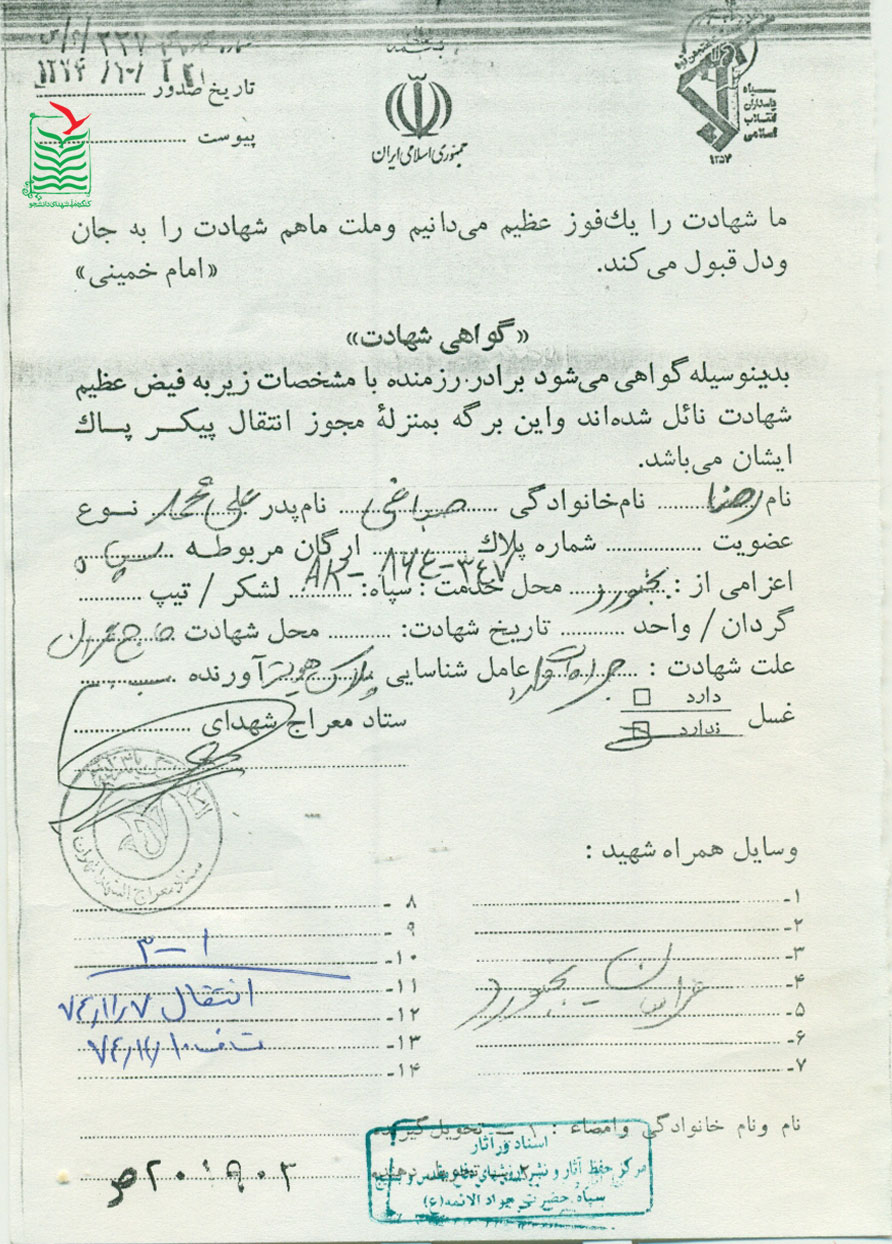 بسمه تعالی
تاریخ صدور ۱۳۷۴/۱۰/۲۲
پیوست
جمهوری اسلامی ایران
سپاه
پاسداران
انقلاب
اسلامی
۱۳۵۷
کنگره ملی شهدای دانشجو
ما شهادت را یك فوز عظیم می‌دانیم وملت ماهم شهادت را به جان
ودل قبول می‌کند. «امام خمینی»
«گواهی شهادت»
بدینوسیله گواهی می‌شود برادر رزمنده با مشخصات زیر به فیض عظیم
شهادت نائل شده‌اند واین برگه بمنزلهٔ مجوز انتقال پیکـر پـاك
ایشان می‌باشد.
نام رضا نام‌خانوادگی صباغی نام‌پدر علی محمد نـوع
عضویت شماره پلاك ۳۴۷-۸۶۴-AK ارگان مربوطـه سپاه
اعزامی از : بجنورد محل خدمت : سپاه: لشکر / تیپ
گردان / واحد تاریخ شهادت: محل شهادت
علت شهادت : عامل شناسایی پلاک هویت آورنده
غسل دارد
ندارد
ستاد معراج شهدای
ستاد معراج الشهدا تهران
وسایل همراه شهید :
۱-
۲-
۳-
۴-
۵-
۶-
۷-
خراسان - بجنورد
۸ -
۹ -
۱۰-
۱۱-
۱۲-
۱۳-
۱۴-
۱-۳
انتقال ۷۴/۱۱/۷
۷۴/۱۱/۱۰
نام ونام خانوادگی وامضاء : ۱ - تحویل‌گیرنده
۲ - تحویل دهنده
اسناد و آثار
مرکز حفظ آثار و نشر ارزشهای دفاع مقدس و بسیج
سپاه حضرت جواد الائمه(ع)
۲۰۱۹۰۲ ص